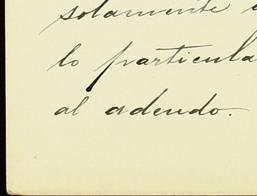 solamente
lo particula
al adeudo.